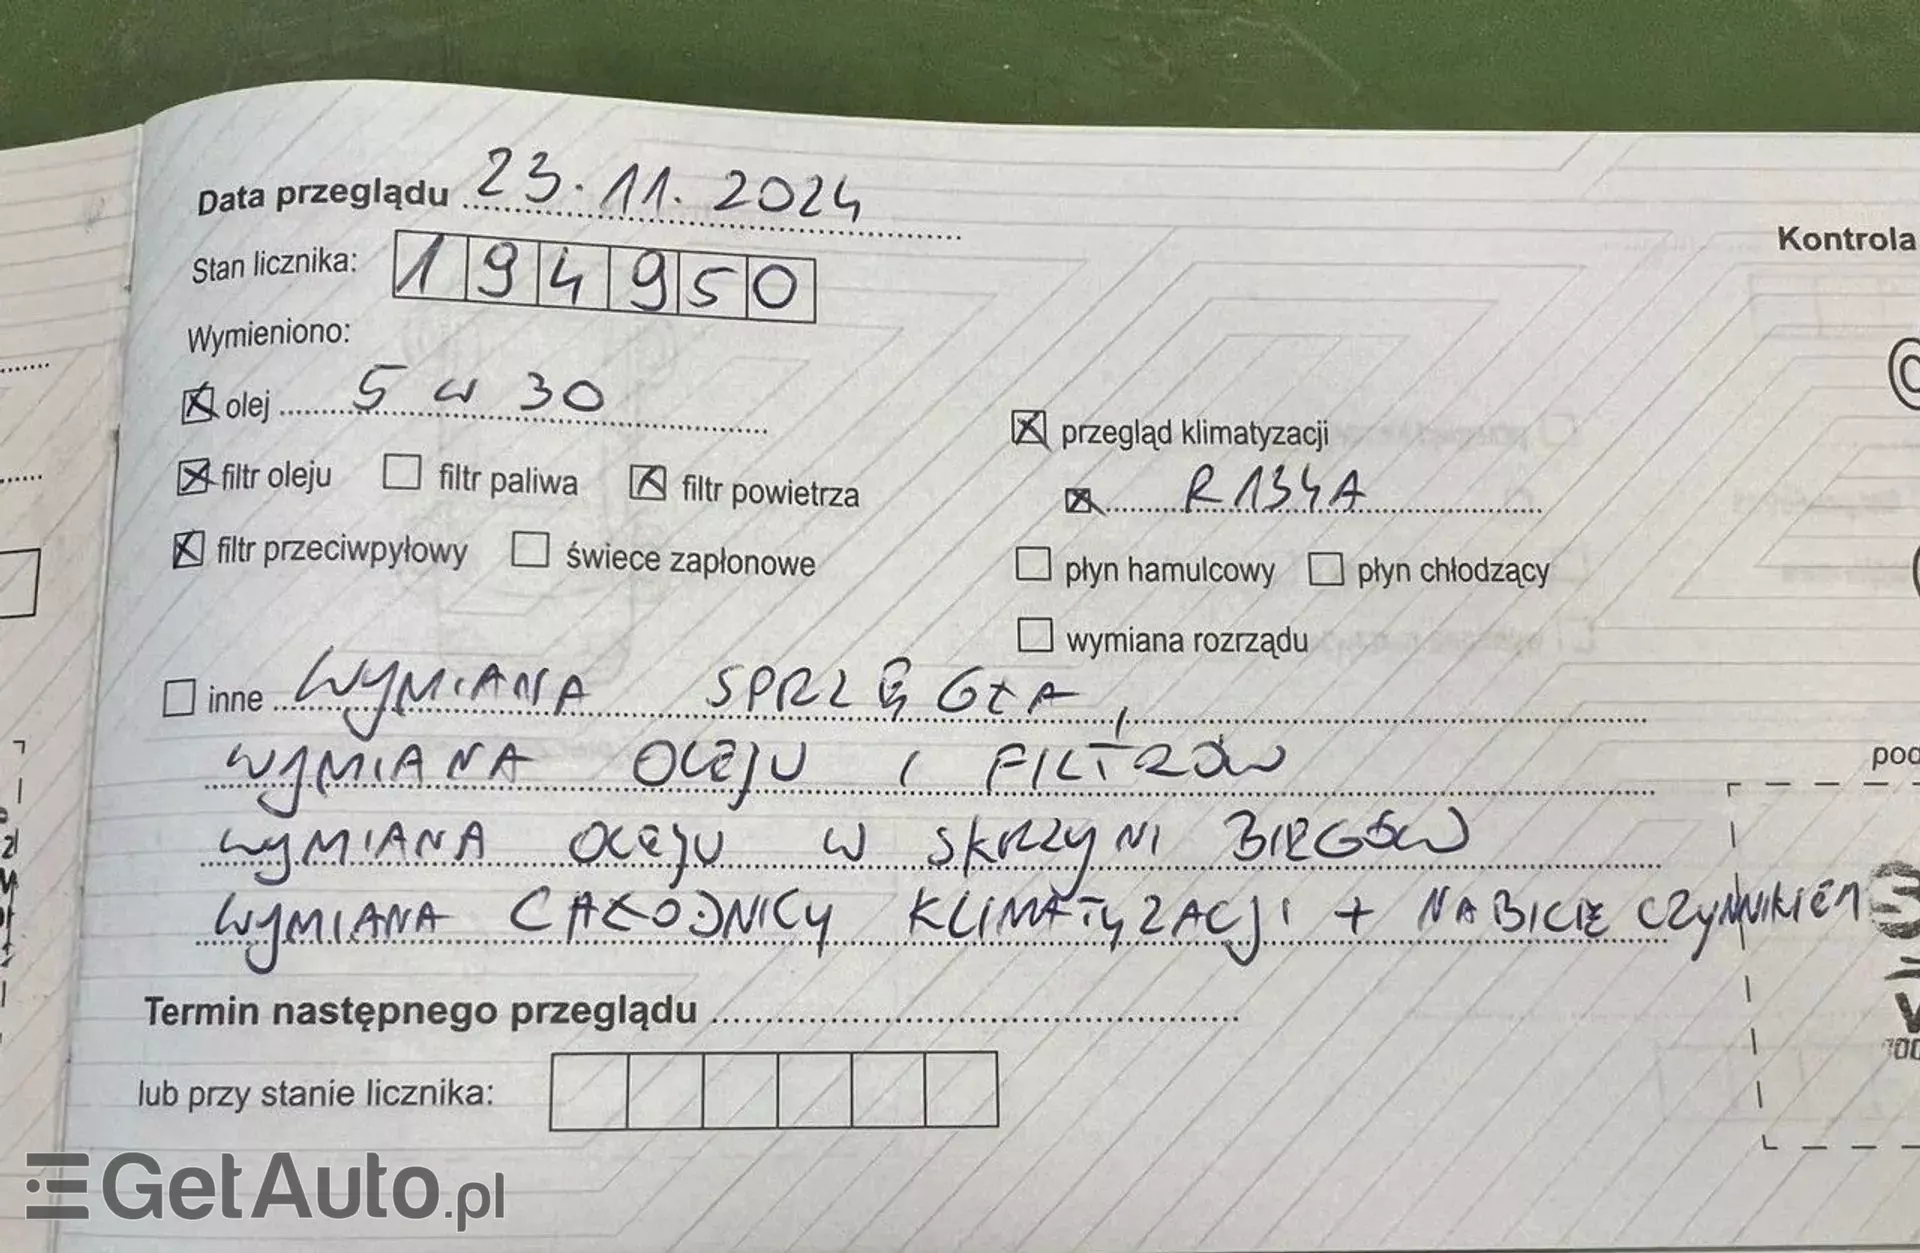 Data przeglądu 23.11.2024
Kontrola
Stan licznika: 194950
Wymieniono:
olej 5W30
przegląd klimatyzacji
filtr oleju filtr paliwa filtr powietrza
R134A
filtr przeciwpyłowy świece zapłonowe
płyn hamulcowy płyn chłodzący
wymiana rozrządu
inne WYMIANA SPRZĘGŁA,
WYMIANA OLEJU I FILTRÓW
WYMIANA OLEJU W SKRZYNI BIEGÓW
WYMIANA CHŁODNICY KLIMATYZACJI + NABICIE CZYNNIKIEM
Termin następnego przeglądu
lub przy stanie licznika:
GetAuto.pl